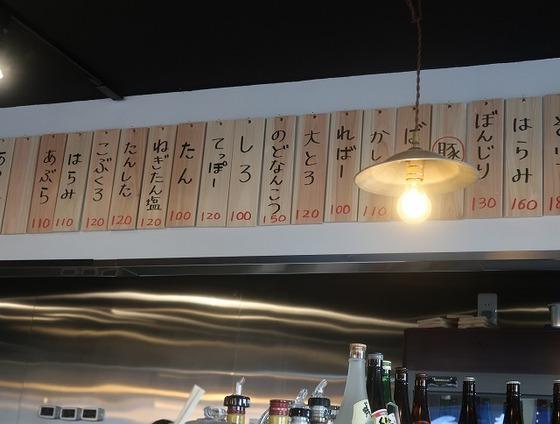 はらみ
160
ぼんじり
130
豚
ば
かし
110
ればー
100
大とろ
120
のどなんこつ
150
しろ
100
てっぽー
120
たん
100
ねぎたん塩
120
たんした
120
こぶくろ
120
はらみ
110
あぶら
110